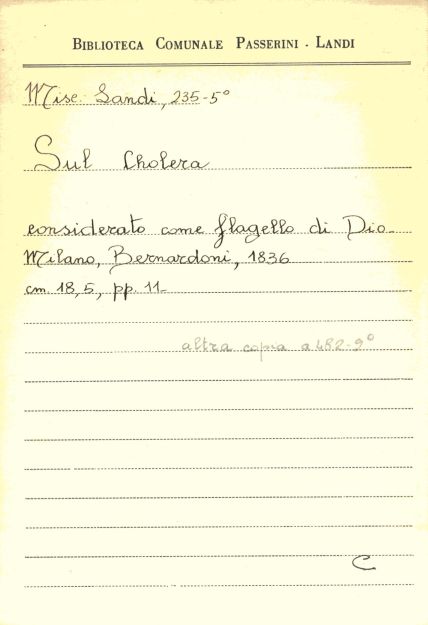 BIBLIOTECA COMUNALE PASSERINI - LANDI
Misc. Landi, 235-5°
Sul Cholera
considerato come flagello di Dio-
Milano, Bernardoni, 1836
cm 18,5, pp. 11-
altra copia a 482-9°
C